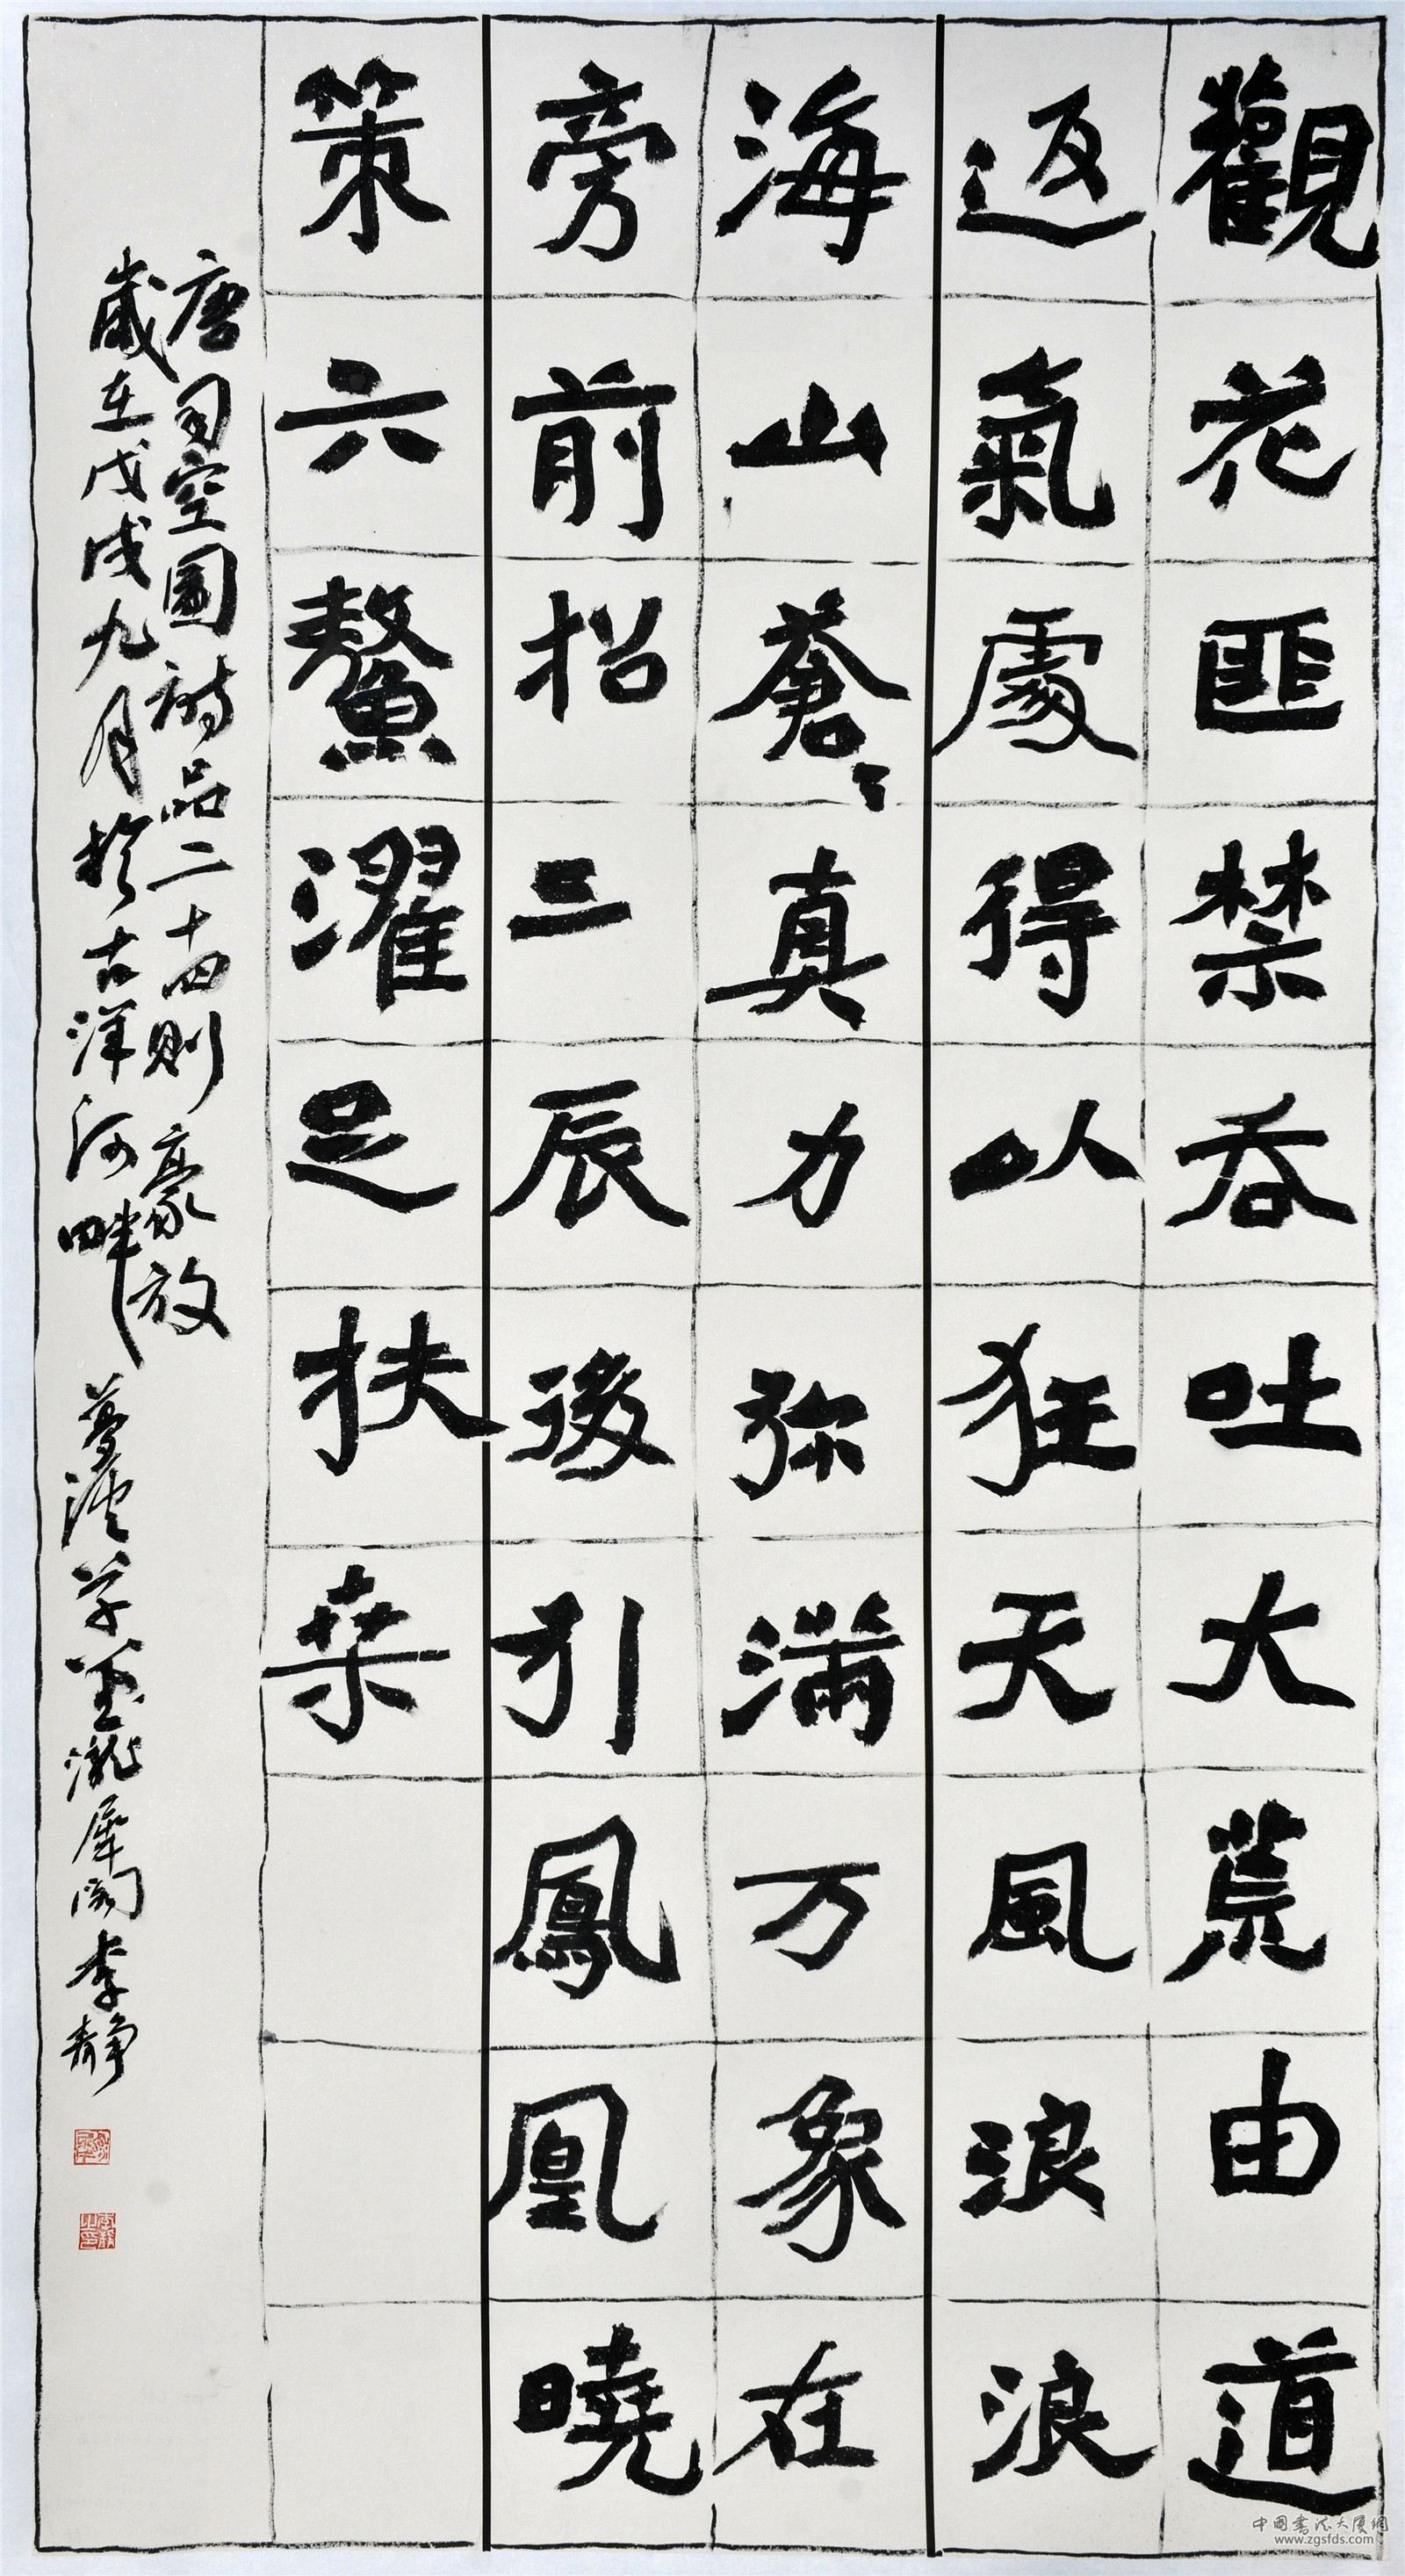 觀花匪禁吞吐大荒由道
返氣處得以狂天風浪浪
海山蒼〻真力弥满万象在
旁前招三辰後引鳳凰曉
策六鰲濯足扶桒
唐司空圖詩品二十四則豪放
歲在戊戌九月於古洋河畔
李靜
中国书法大厦網
www.zgsfds.com